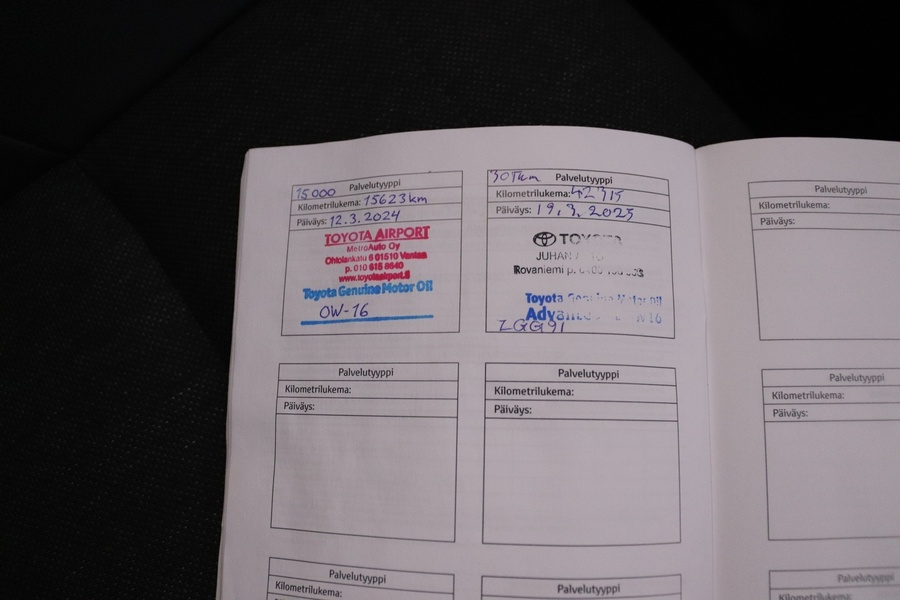 15000 Palvelutyyppi
Kilometrilukema: 15623 km
Päiväys: 12.3.2024
TOYOTA AIRPORT
MetroAuto Oy
Ohtolankatu 6 01510 Vantaa
p. 010 615 8640
www.toyotaairport.fi
Toyota Genuine Motor Oil
OW-16
30Tkm Palvelutyyppi
Kilometrilukema: 42315
Päiväys: 19.3.2025
TOYOTA
Rovaniemi p.
Toyota Genuine Motor Oil
ZGG91
Palvelutyyppi
Kilometrilukema:
Päiväys:
Palvelutyyppi
Kilometrilukema:
Päiväys:
Palvelutyyppi
Kilometrilukema:
Päiväys:
Palvelutyyppi
Kilometrilukema:
Päiväys:
Palvelutyyppi
Kilometrilukema:
Palvelutyyppi
Palvelutyyppi
Kilometrilukema: